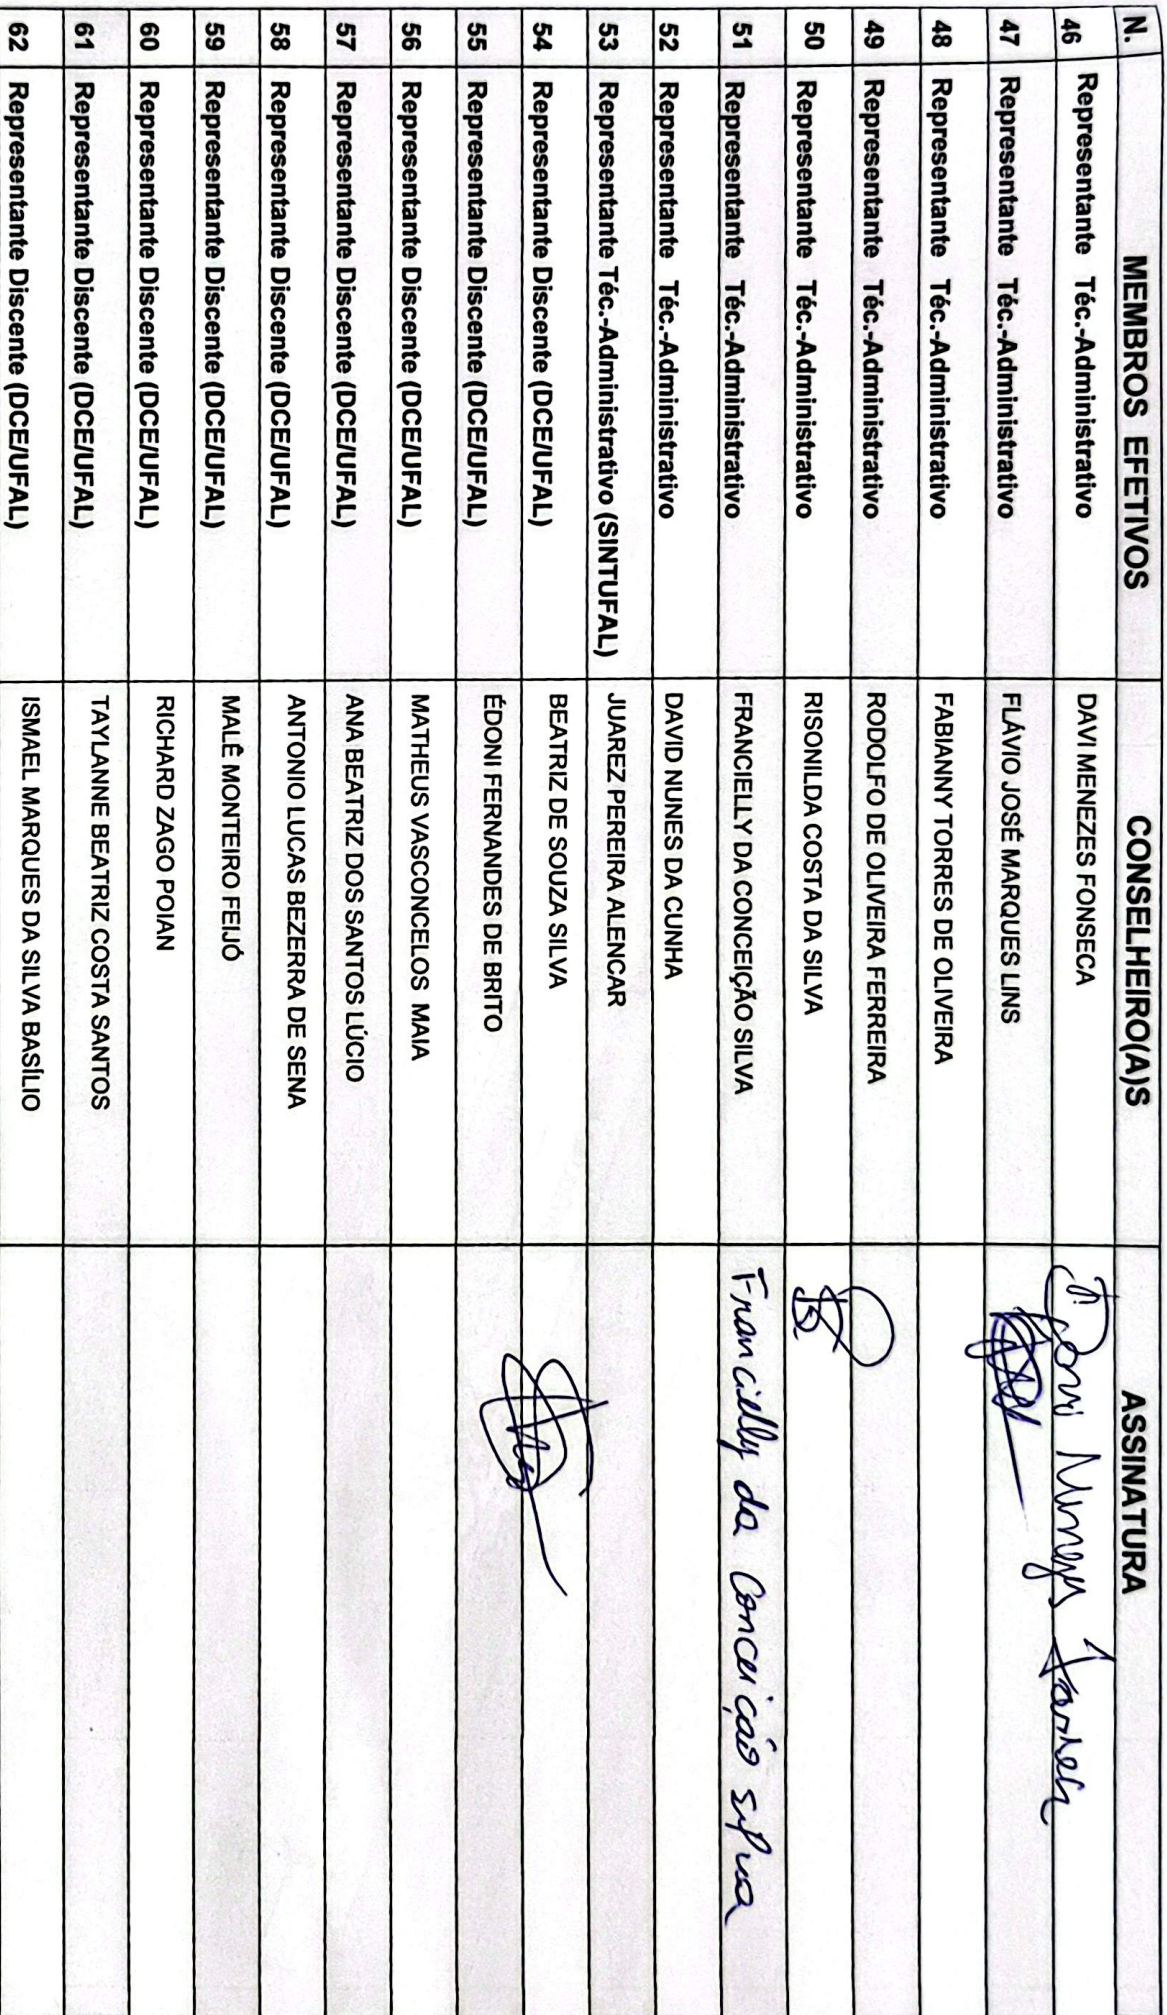 N. MEMBROS EFETIVOS CONSELHEIRO(A)S ASSINATURA
46 Representante Téc.-Administrativo DAVI MENEZES FONSECA Davi Menezes Fonseca
47 Representante Téc.-Administrativo FLÁVIO JOSÉ MARQUES LINS
48 Representante Téc.-Administrativo FABIANNY TORRES DE OLIVEIRA
49 Representante Téc.-Administrativo RODOLFO DE OLIVEIRA FERREIRA
50 Representante Téc.-Administrativo RISONILDA COSTA DA SILVA
51 Representante Téc.-Administrativo FRANCIELLY DA CONCEIÇÃO SILVA Francielly da Conceição Silva
52 Representante Téc.-Administrativo DAVID NUNES DA CUNHA
53 Representante Téc.-Administrativo (SINTUFAL) JUAREZ PEREIRA ALENCAR
54 Representante Discente (DCE/UFAL) BEATRIZ DE SOUZA SILVA
55 Representante Discente (DCE/UFAL) ÉDONI FERNANDES DE BRITO
56 Representante Discente (DCE/UFAL) MATHEUS VASCONCELOS MAIA
57 Representante Discente (DCE/UFAL) ANA BEATRIZ DOS SANTOS LÚCIO
58 Representante Discente (DCE/UFAL) ANTONIO LUCAS BEZERRA DE SENA
59 Representante Discente (DCE/UFAL) MALÊ MONTEIRO FEIJÓ
60 Representante Discente (DCE/UFAL) RICHARD ZAGO POIAN
61 Representante Discente (DCE/UFAL) TAYLANNE BEATRIZ COSTA SANTOS
62 Representante Discente (DCE/UFAL) ISMAEL MARQUES DA SILVA BASÍLIO